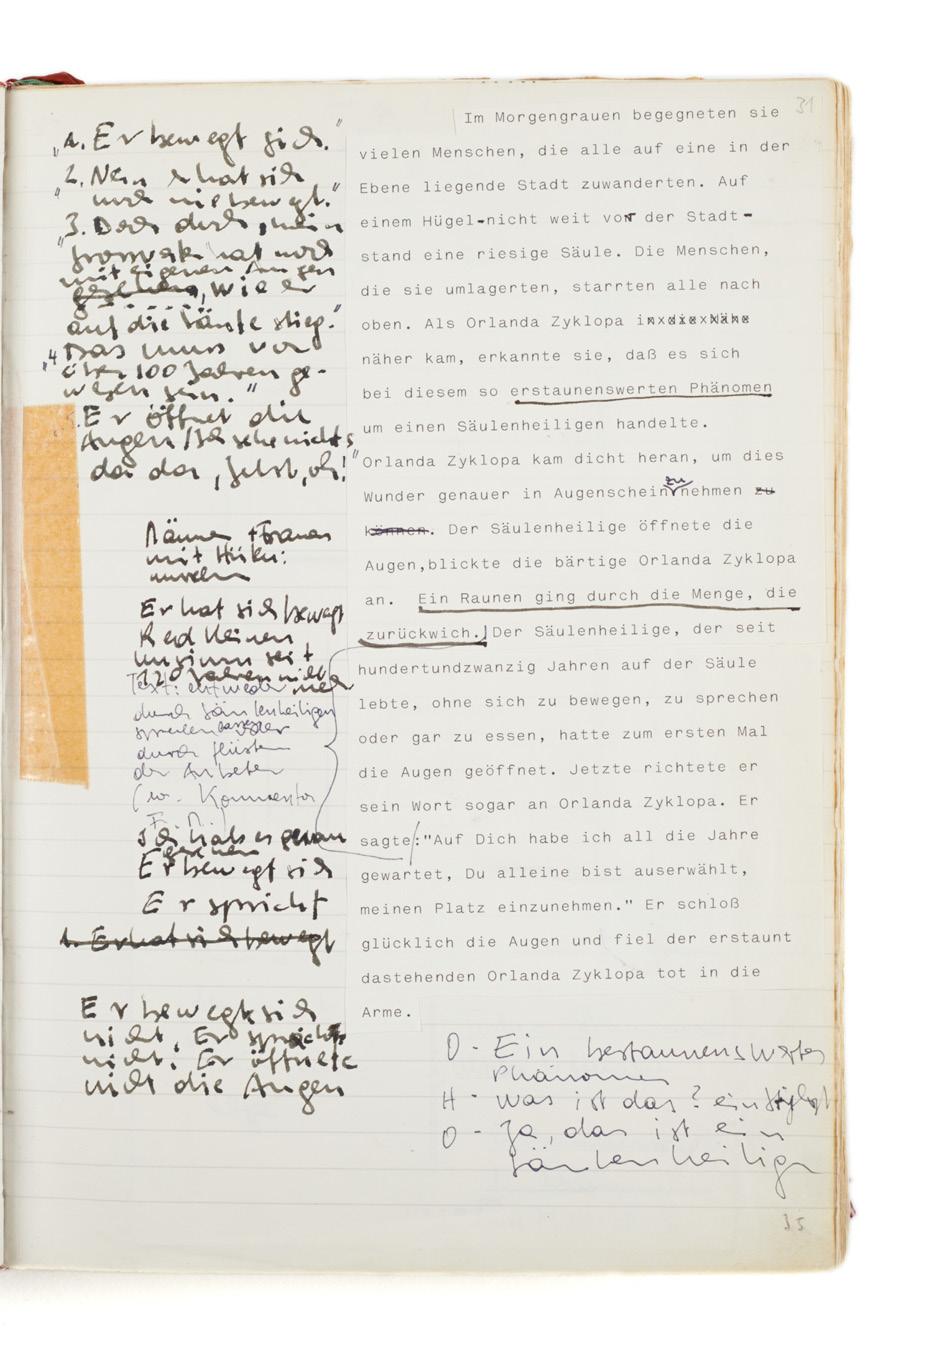 31
Im Morgengrauen begegneten sie
vielen Menschen, die alle auf eine in der
Ebene liegende Stadt zuwanderten. Auf
einem Hügel-nicht weit vor der Stadt-
stand eine riesige Säule. Die Menschen,
die sie umlagerten, starrten alle nach
oben. Als Orlanda Zyklopa inxdiexNähe
näher kam, erkannte sie, daß es sich
bei diesem so erstaunenswerten Phänomen
um einen Säulenheiligen handelte.
Orlanda Zyklopa kam dicht heran, um dies
Wunder genauer in Augenschein zu nehmen zu
können. Der Säulenheilige öffnete die
Augen,blickte die bärtige Orlanda Zyklopa
an. Ein Raunen ging durch die Menge, die
zurückwich. Der Säulenheilige, der seit
hundertundzwanzig Jahren auf der Säule
lebte, ohne sich zu bewegen, zu sprechen
oder gar zu essen, hatte zum ersten Mal
die Augen geöffnet. Jetzte richtete er
sein Wort sogar an Orlanda Zyklopa. Er
sagte:"Auf Dich habe ich all die Jahre
gewartet, Du alleine bist auserwählt,
meinen Platz einzunehmen." Er schloß
glücklich die Augen und fiel der erstaunt
dastehenden Orlanda Zyklopa tot in die
Arme.
"1. Er bewegt sich."
2. Nein er hat sich
"noch nie bewegt."
"3. Doch doch, mein
hat noch
mit eigenen Augen
gesehen, wie er
auf die Säule stieg."
"4 Das muss vor
über 100 Jahren ge-
wesen sein."
Er öffnet die
Augen / Ich sehe nichts
da da, jetzt, oh!"
Männer + Frauen
mit Hüten:
murmeln
Er hat sich bewegt
Red keinen
Unsinn seit
120 Jahren nicht mehr
Text: entweder
durch Säulenheiligen
sprechen lassen oder
durch flüstern
der Anbeter
(w. Kommentar
F. M.)
Ich hab es genau
gesehen
Er bewegt sich
Er spricht
1. Er hat sich bewegt
Er bewegt sich
nicht, Er spricht
nicht: Er öffnete
nicht die Augen
O - Ein bestaunenswertes
Phänomen
H - was ist das? ein
O - Ja, das ist ein
Säulenheiliger
35